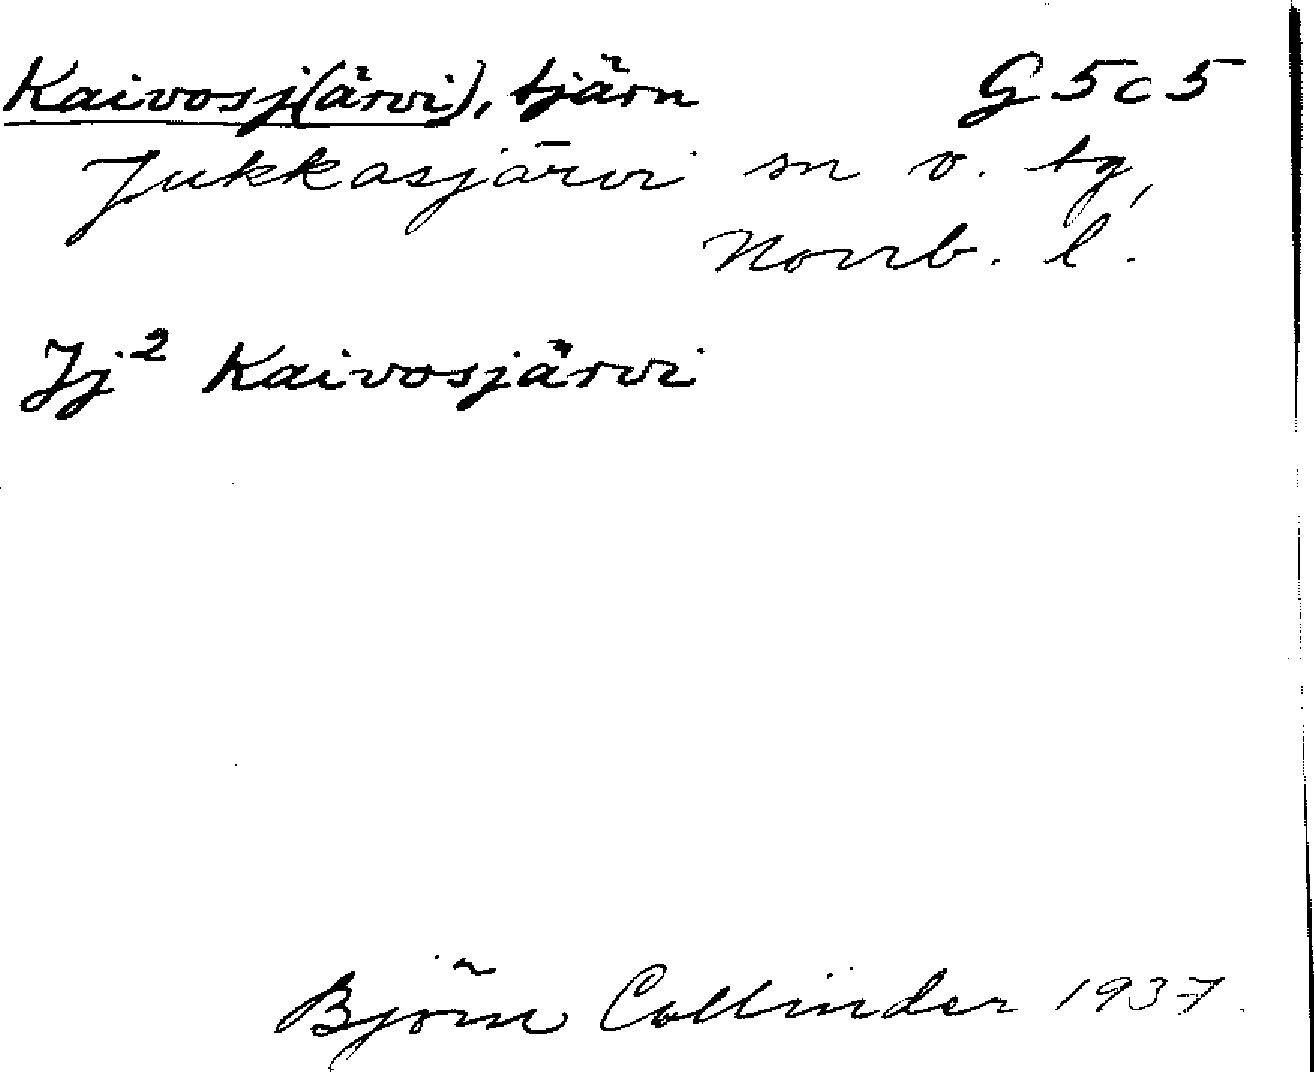 Kaivosj(ärvi), tjärn G 5 c 5
Jukkasjärvi sn v. tg,
Norrb. l.
Jj² Kaivosjärvi
Björn Collinder 1937.